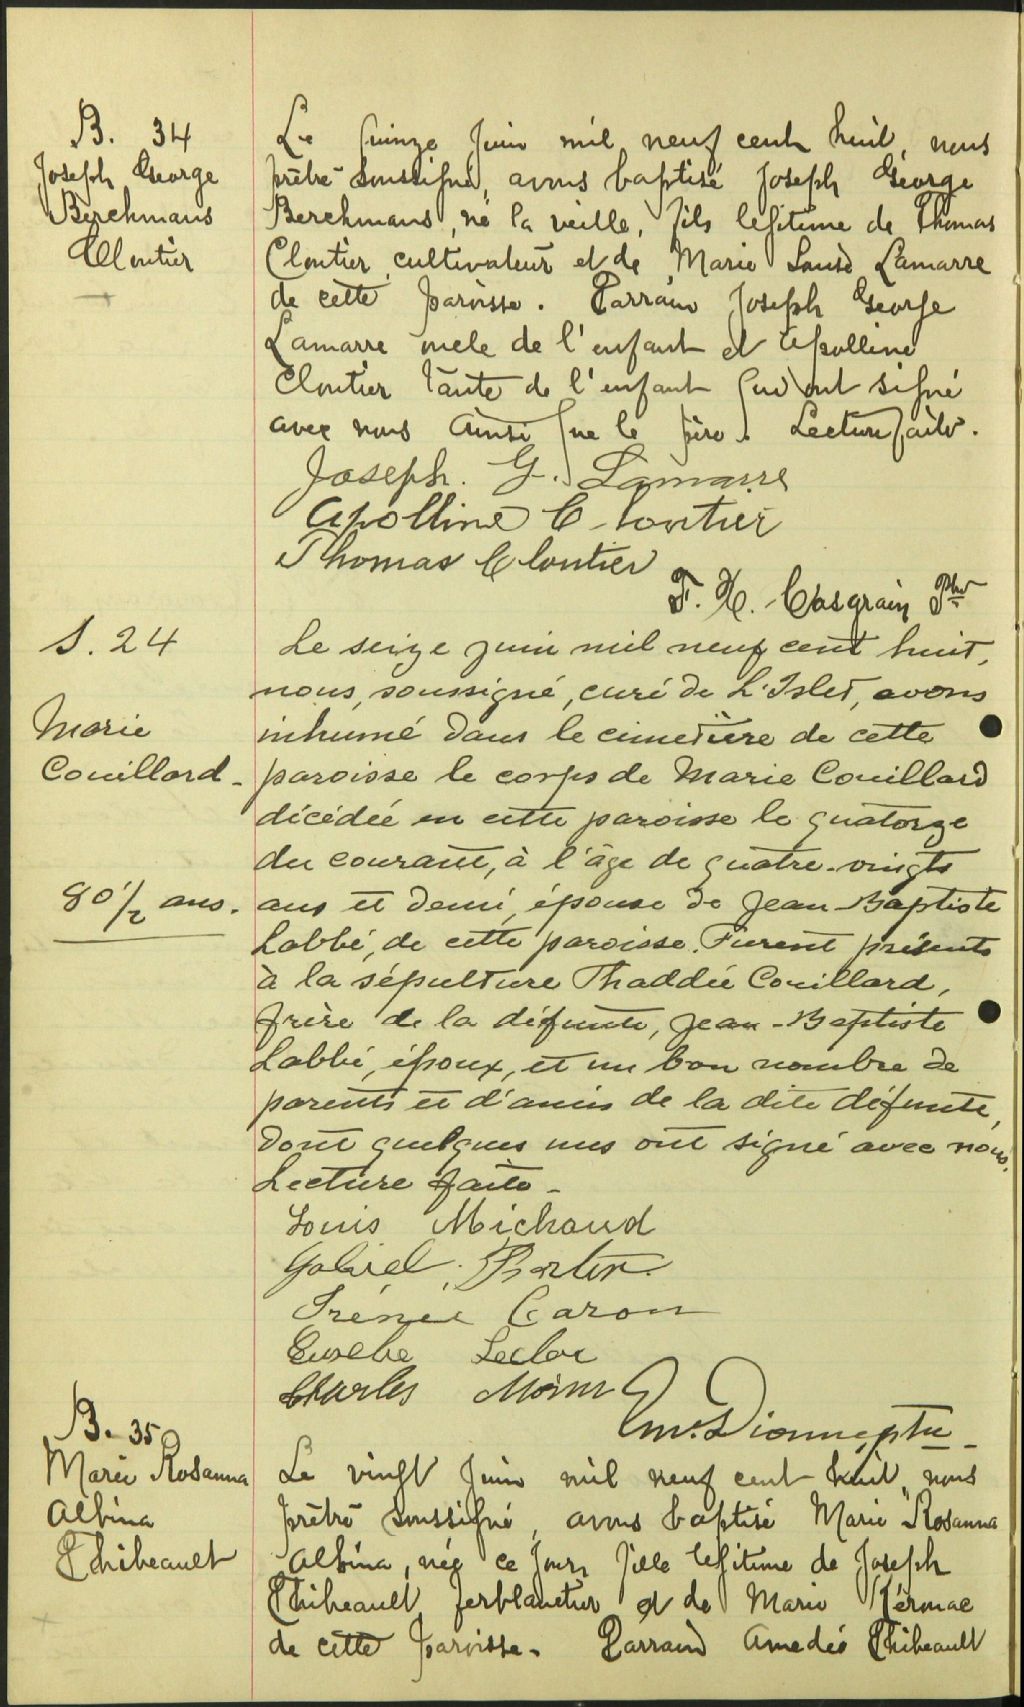 B. 34
Joseph George
Berchmans
Cloutier
Le quinze juin mil neuf cent huit, nous
prêtre soussigné, avons baptisé Joseph George
Berchmans, né la veille, fils légitime de Thomas
Cloutier, cultivateur et de Marie Louise Lamarre
de cette paroisse. Parrain Joseph George
Lamarre oncle de l'enfant et Apolline
Cloutier tante de l'enfant qui ont signé
avec nous ainsi que le père. Lecture faite.
Joseph. G. Lamarre
Apolline Cloutier
Thomas Cloutier
F. X. Casgrain Ptre
S. 24
Marie
Couillard -
80 1/2 ans.
Le seize juin mil neuf cent huit,
nous, soussigné, curé de L'Islet, avons
inhumé dans le cimetière de cette
paroisse le corps de Marie Couillard
décédée en cette paroisse le quatorze
du courant, à l'âge de quatre-vingts
ans et demi, épouse de Jean-Baptiste
Labbé, de cette paroisse. Furent présents
à la sépulture Thaddée Couillard,
frère de la défunte, Jean-Baptiste
Labbé, époux, et un bon nombre de
parents et d'amis de la dite défunte,
dont quelques uns ont signé avec nous.
Lecture faite -
Louis Michaud
Gabriel
Irénée Caron
Eusèbe Leclerc
Charles Morin
Dionne, ptre -
B. 35
Marie Rosanna
Albina
Thibeault
Le vingt juin mil neuf cent huit, nous
prêtre soussigné, avons baptisé Marie Rosanna
Albina, née ce jour, fille légitime de Joseph
Thibeault ferblantier et de Marie Kérouac
de cette paroisse. Parrain Amedée Thibeault